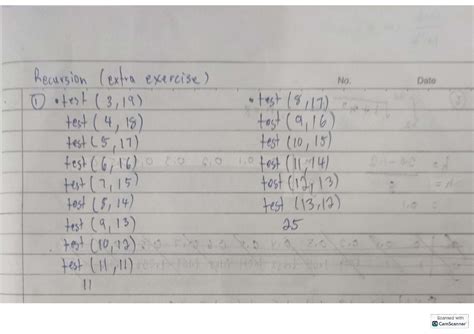 Recursion (extra exercise)
No.
Date
① • test (3,19)
test (4,18)
test (5,17)
test (6,16)
test (7,15)
test (8,14)
test (9,13)
test (10,12)
test (11,11)
11
• test (8,17)
test (9,16)
test (10,15)
test (11,14)
test (12,13)
test (13,12)
25
Scanned with
CamScanner